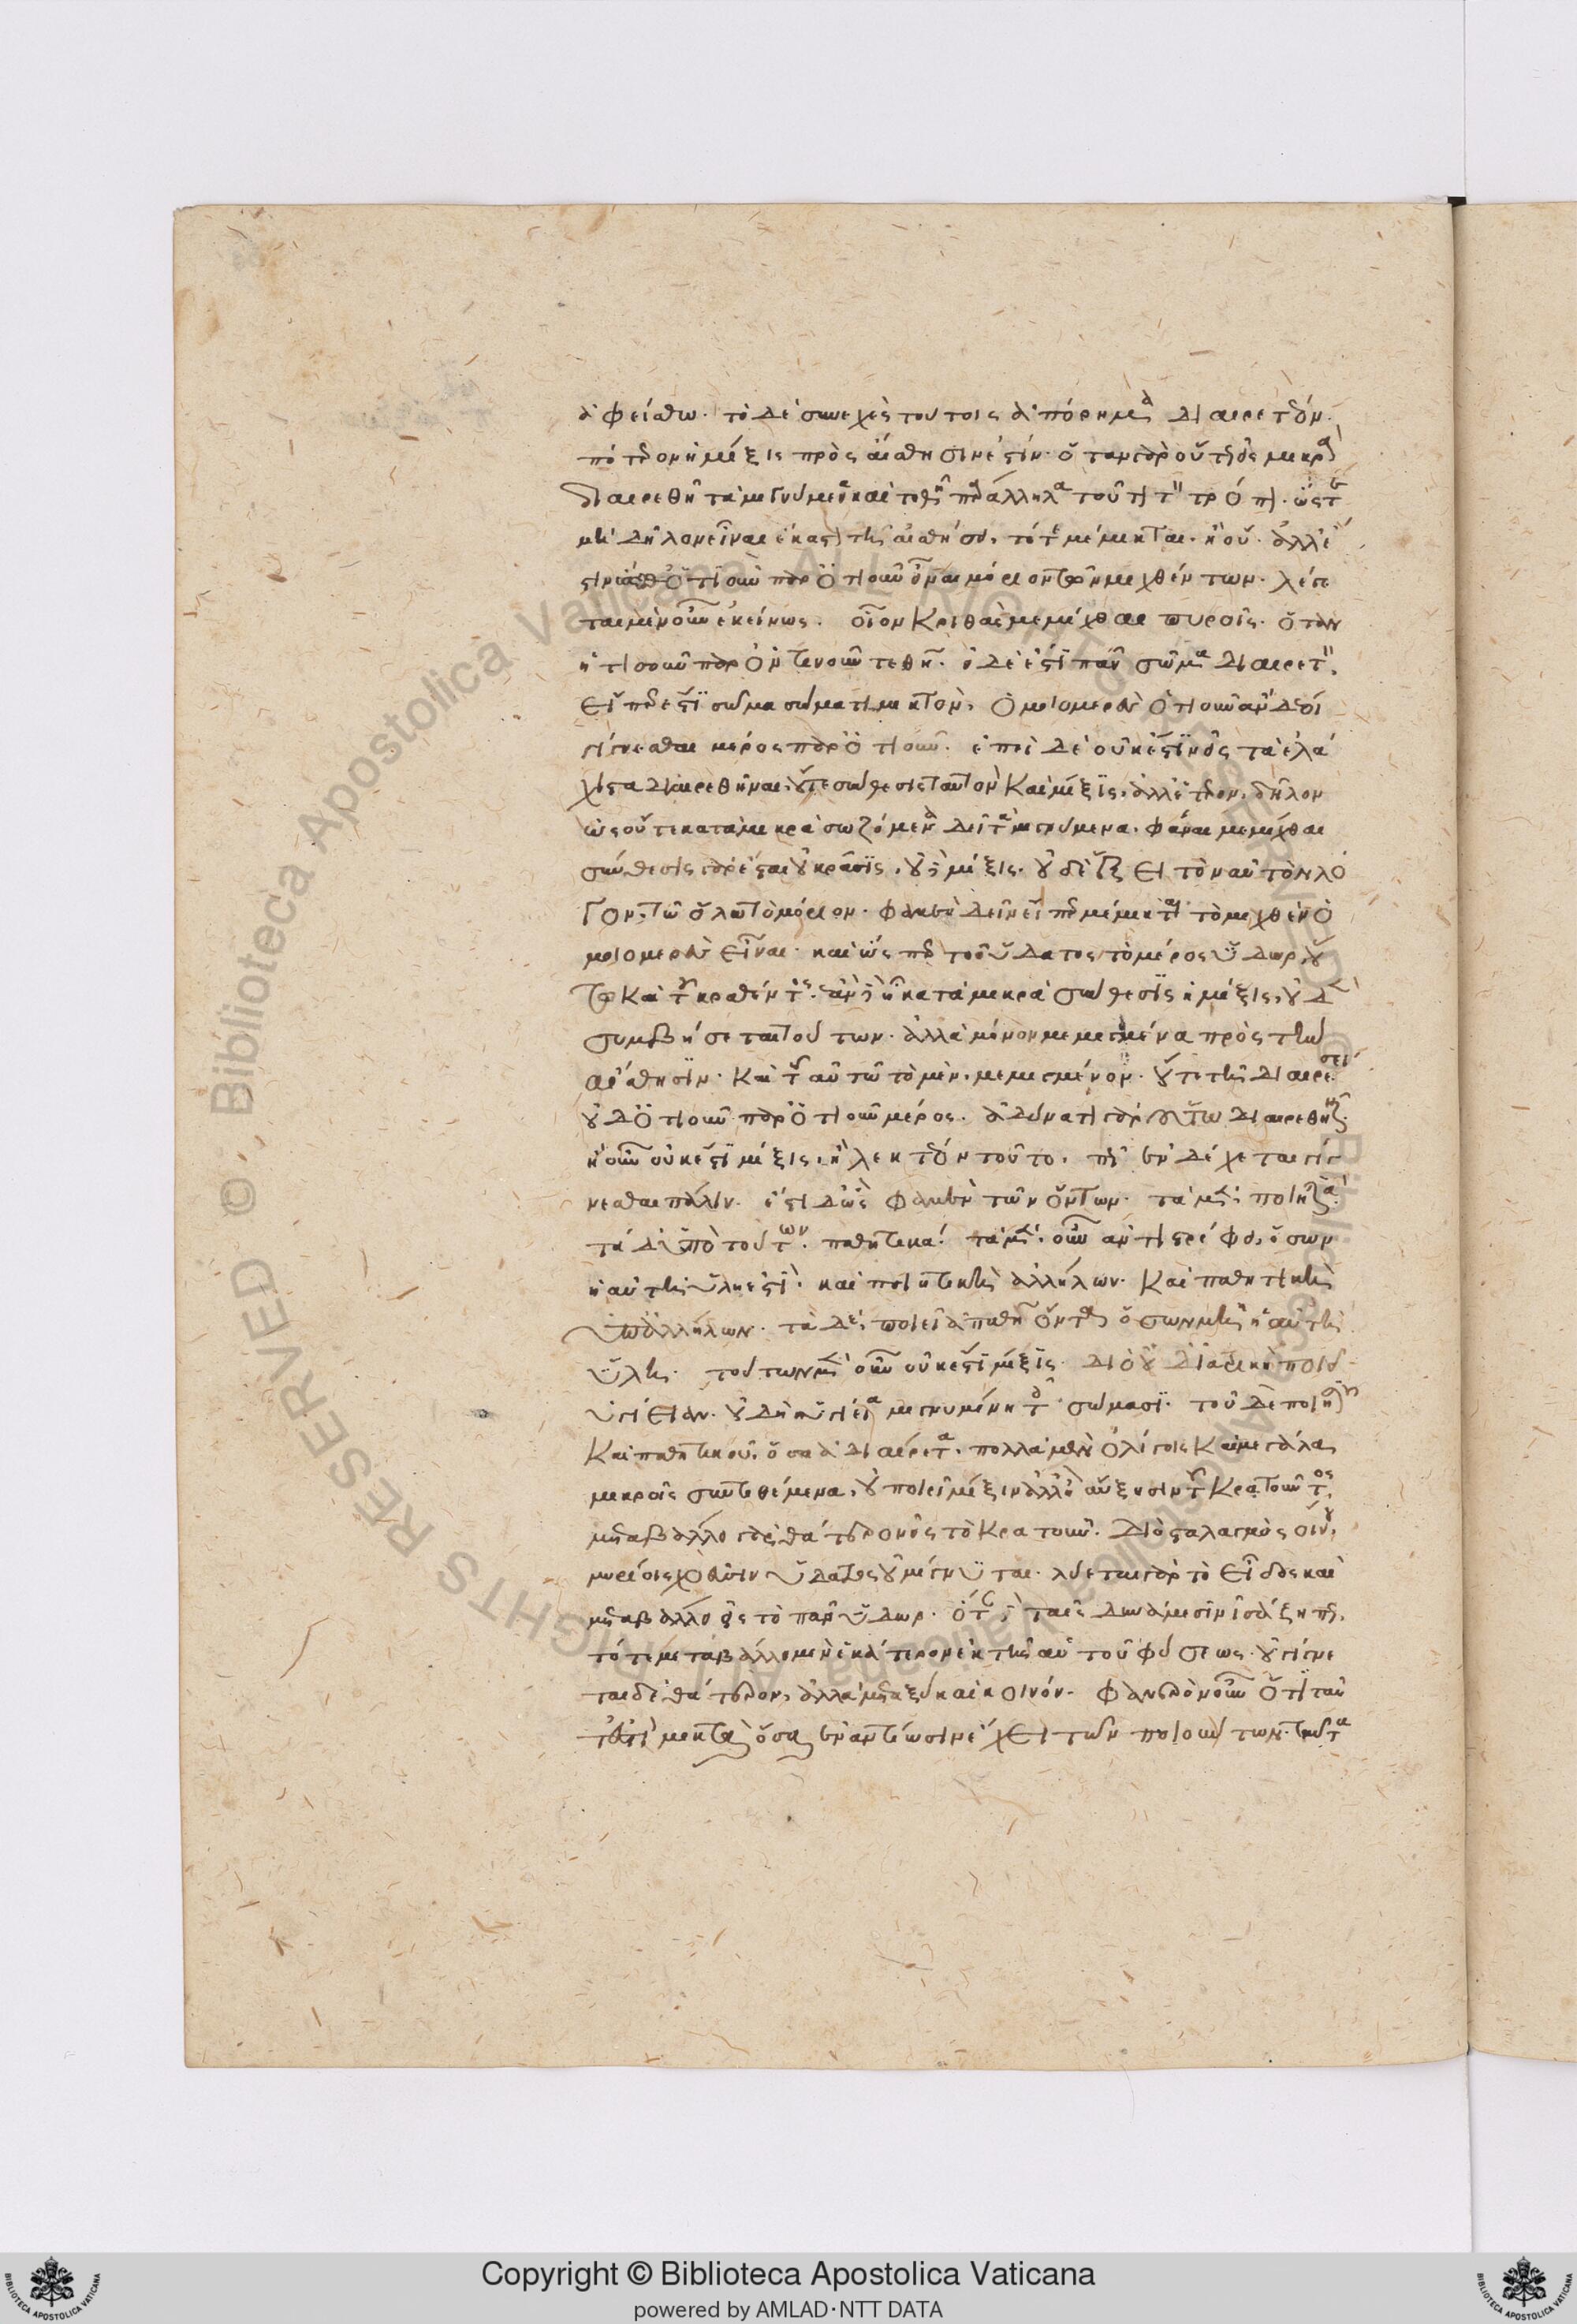 ἀφείσθω. τὸ δὲ συνεχὲς τούτοις ἀπόρημα διαιρετέον.
πότερον ἡ μίξις πρὸς αἴσθησιν ἐστίν. ὅταν γὰρ οὕτως εἰς μικρὰ
διαιρεθῆ τὰ μιγνύμενα καὶ τεθῆ παρ' ἄλληλα τοῦτον τὸν τρόπον. ὥστε
μὴ δῆλον εἶναι ἕκαστον τῆ αἰσθήσει, τότε μέμικται. ἢ οὔ. ἀλλ' ἔ
στιν ὥστε ὁτιοῦν παρ' ὁτιοῦν εἶναι μόριον τῶν μιχθέντων. λέγε
ται μὲν οὖν ἐκείνως. οἷον κριθαὶ μεμίχθαι πυροῖς. ὅταν
ἡτισοῦν παρ' ὁντινοῦν τεθῆ. εἰ δέ ἐστι πᾶν σῶμα διαιρετόν,
εἴπερ ἐστὶ σῶμα σώματι μικτὸν, ὁμοιομερὲς ὁτιοῦν ἂν δέοι
γίνεσθαι μέρος παρ' ὁτιοῦν. ἐπεὶ δὲ οὐκ ἔστιν εἰς τὰ ἐλά
χιστα διαιρεθῆναι, οὔτε σύνθεσις ταυτὸν καὶ μίξις, ἀλλ' ἕτερον, δῆλον
ὡς οὔτε κατὰ μικρὰ σωζόμενα δεῖ τὰ μιγνύμενα. φάναι μεμίχθαι
σύνθεσις γὰρ ἔσται οὐ κρᾶσις, οὐδὲ μίξις. οὐδὲ ἕξει τὸν αὐτὸν λό
γον, τῶ ὅλω τὸ μόριον. φαμὲν δεῖν εἴπερ μέμικται τὸ μιχθὲν ὁ
μοιομερὲς εἶναι. καὶ ὥσπερ τοῦ ὕδατος τὸ μέρος ὕδωρ, οὕ
τω καὶ τοῦ κραθέντος. ἂν δὲ ἦ κατὰ μικρὰ σύνθεσις ἡ μίξις, οὐδὲν
συμβήσεται τούτων. ἀλλὰ μόνον μεμιγμένα πρὸς τὴν
αἴσθησιν. καὶ τὸ αὐτῶ τὸ μὲν, μεμιγμένον. οὔτε τῆ διαιρέσει
οὐδ' ὁτιοῦν παρ' ὁτιοῦν μέρος. ἀδύνατον γὰρ οὕτω διαιρεθῆναι.
ἢ οὖν οὐκ ἔστι μίξις, ἢ λεκτέον τοῦτο. πῶς ἐνδέχεται γίγ
νεσθαι πάλιν. ἔστι δ' ὡς φαμὲν τῶν ὄντων. τὰ μὲν, ποιητικά.
τὰ δ' ὑπὸ τούτων. παθητικά. τὰ μὲν, οὖν ἀντιστρέφει, ὅσων
ἡ αὐτὴ ὕλη ἐστὶ. καὶ ποιητικὰ ἀλλήλων. καὶ παθητικὰ
ὑπ' ἀλλήλων. τὰ δὲ, ποιεῖ ἀπαθῆ ὄντα ὅσων μὴ ἡ αὐτὴ
ὕλη. τούτων μὲν οὖν οὐκ ἔστι μίξις. διὸ οὐδ' ἰατρικὴ ποιεῖ
ὑγίειαν. οὐδ' ἡ ὑγίεια μιγνυμένη τοῖς σώμασι. τοῦ δὲ ποιητικοῦ
καὶ παθητικοῦ, ὅσα διαίρετα. πολλὰ μὲν ὀλίγοις καὶ μεγάλα
μικροῖς συντιθέμενα, οὐ ποιεῖ μίξιν ἀλλ' αὔξησιν τοῦ κρατοῦντος,
μεταβάλλει γὰρ θάτερον εἰς τὸ κρατοῦν. διὸ σταλαγμὸς οἴνου,
μυρίοις χοεῦσιν ὕδατος οὐ μίγνυται. λύεται γὰρ τὸ εἶδος καὶ
μεταβάλλει εἰς τὸ πᾶν ὕδωρ. ὅταν δὲ ταῖς δυνάμεσιν ἰσάξη πως,
τότε μεταβάλλει μὲν ἑκάτερον ἐκ τῆς αὐτοῦ φύσεως. οὐ γίνε
ται δὲ θάτερον, ἀλλὰ μεταξὺ καὶ κοινόν. φανερὸν οὖν ὅτι ταῦ
τ' ἐστὶ μικτὰ ὅσα ἐναντίωσιν ἔχει τῶν ποιούντων. ταῦτα